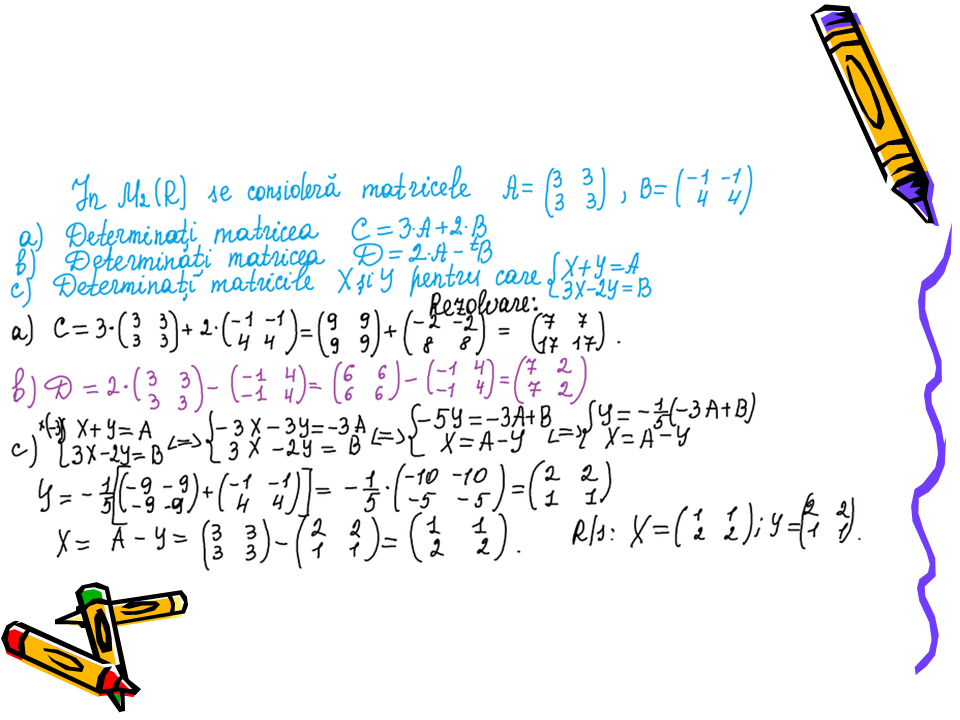 În M₂(R) se consideră matricele A = (3 3; 3 3), B = (-1 -1; 4 4)
a) Determinați matricea C = 3·A + 2·B
b) Determinați matricea D = 2·A - ᵗB
c) Determinați matricile X și Y pentru care {X + Y = A; 3X - 2Y = B
Rezolvare:
a) C = 3·(3 3; 3 3) + 2·(-1 -1; 4 4) = (9 9; 9 9) + (-2 -2; 8 8) = (7 7; 17 17).
b) D = 2·(3 3; 3 3) - (-1 4; -1 4) = (6 6; 6 6) - (-1 4; -1 4) = (7 2; 7 2)
c) *(-3) {X + Y = A; 3X - 2Y = B <=> {-3X - 3Y = -3A; 3X - 2Y = B <=> {-5Y = -3A + B; X = A - Y <=> {Y = -1/5(-3A + B); X = A - Y
Y = -1/5[(-9 -9; -9 -9) + (-1 -1; 4 4)] = -1/5·(-10 -10; -5 -5) = (2 2; 1 1)
X = A - Y = (3 3; 3 3) - (2 2; 1 1) = (1 1; 2 2). R/s: X = (1 1; 2 2); Y = (2 2; 1 1).